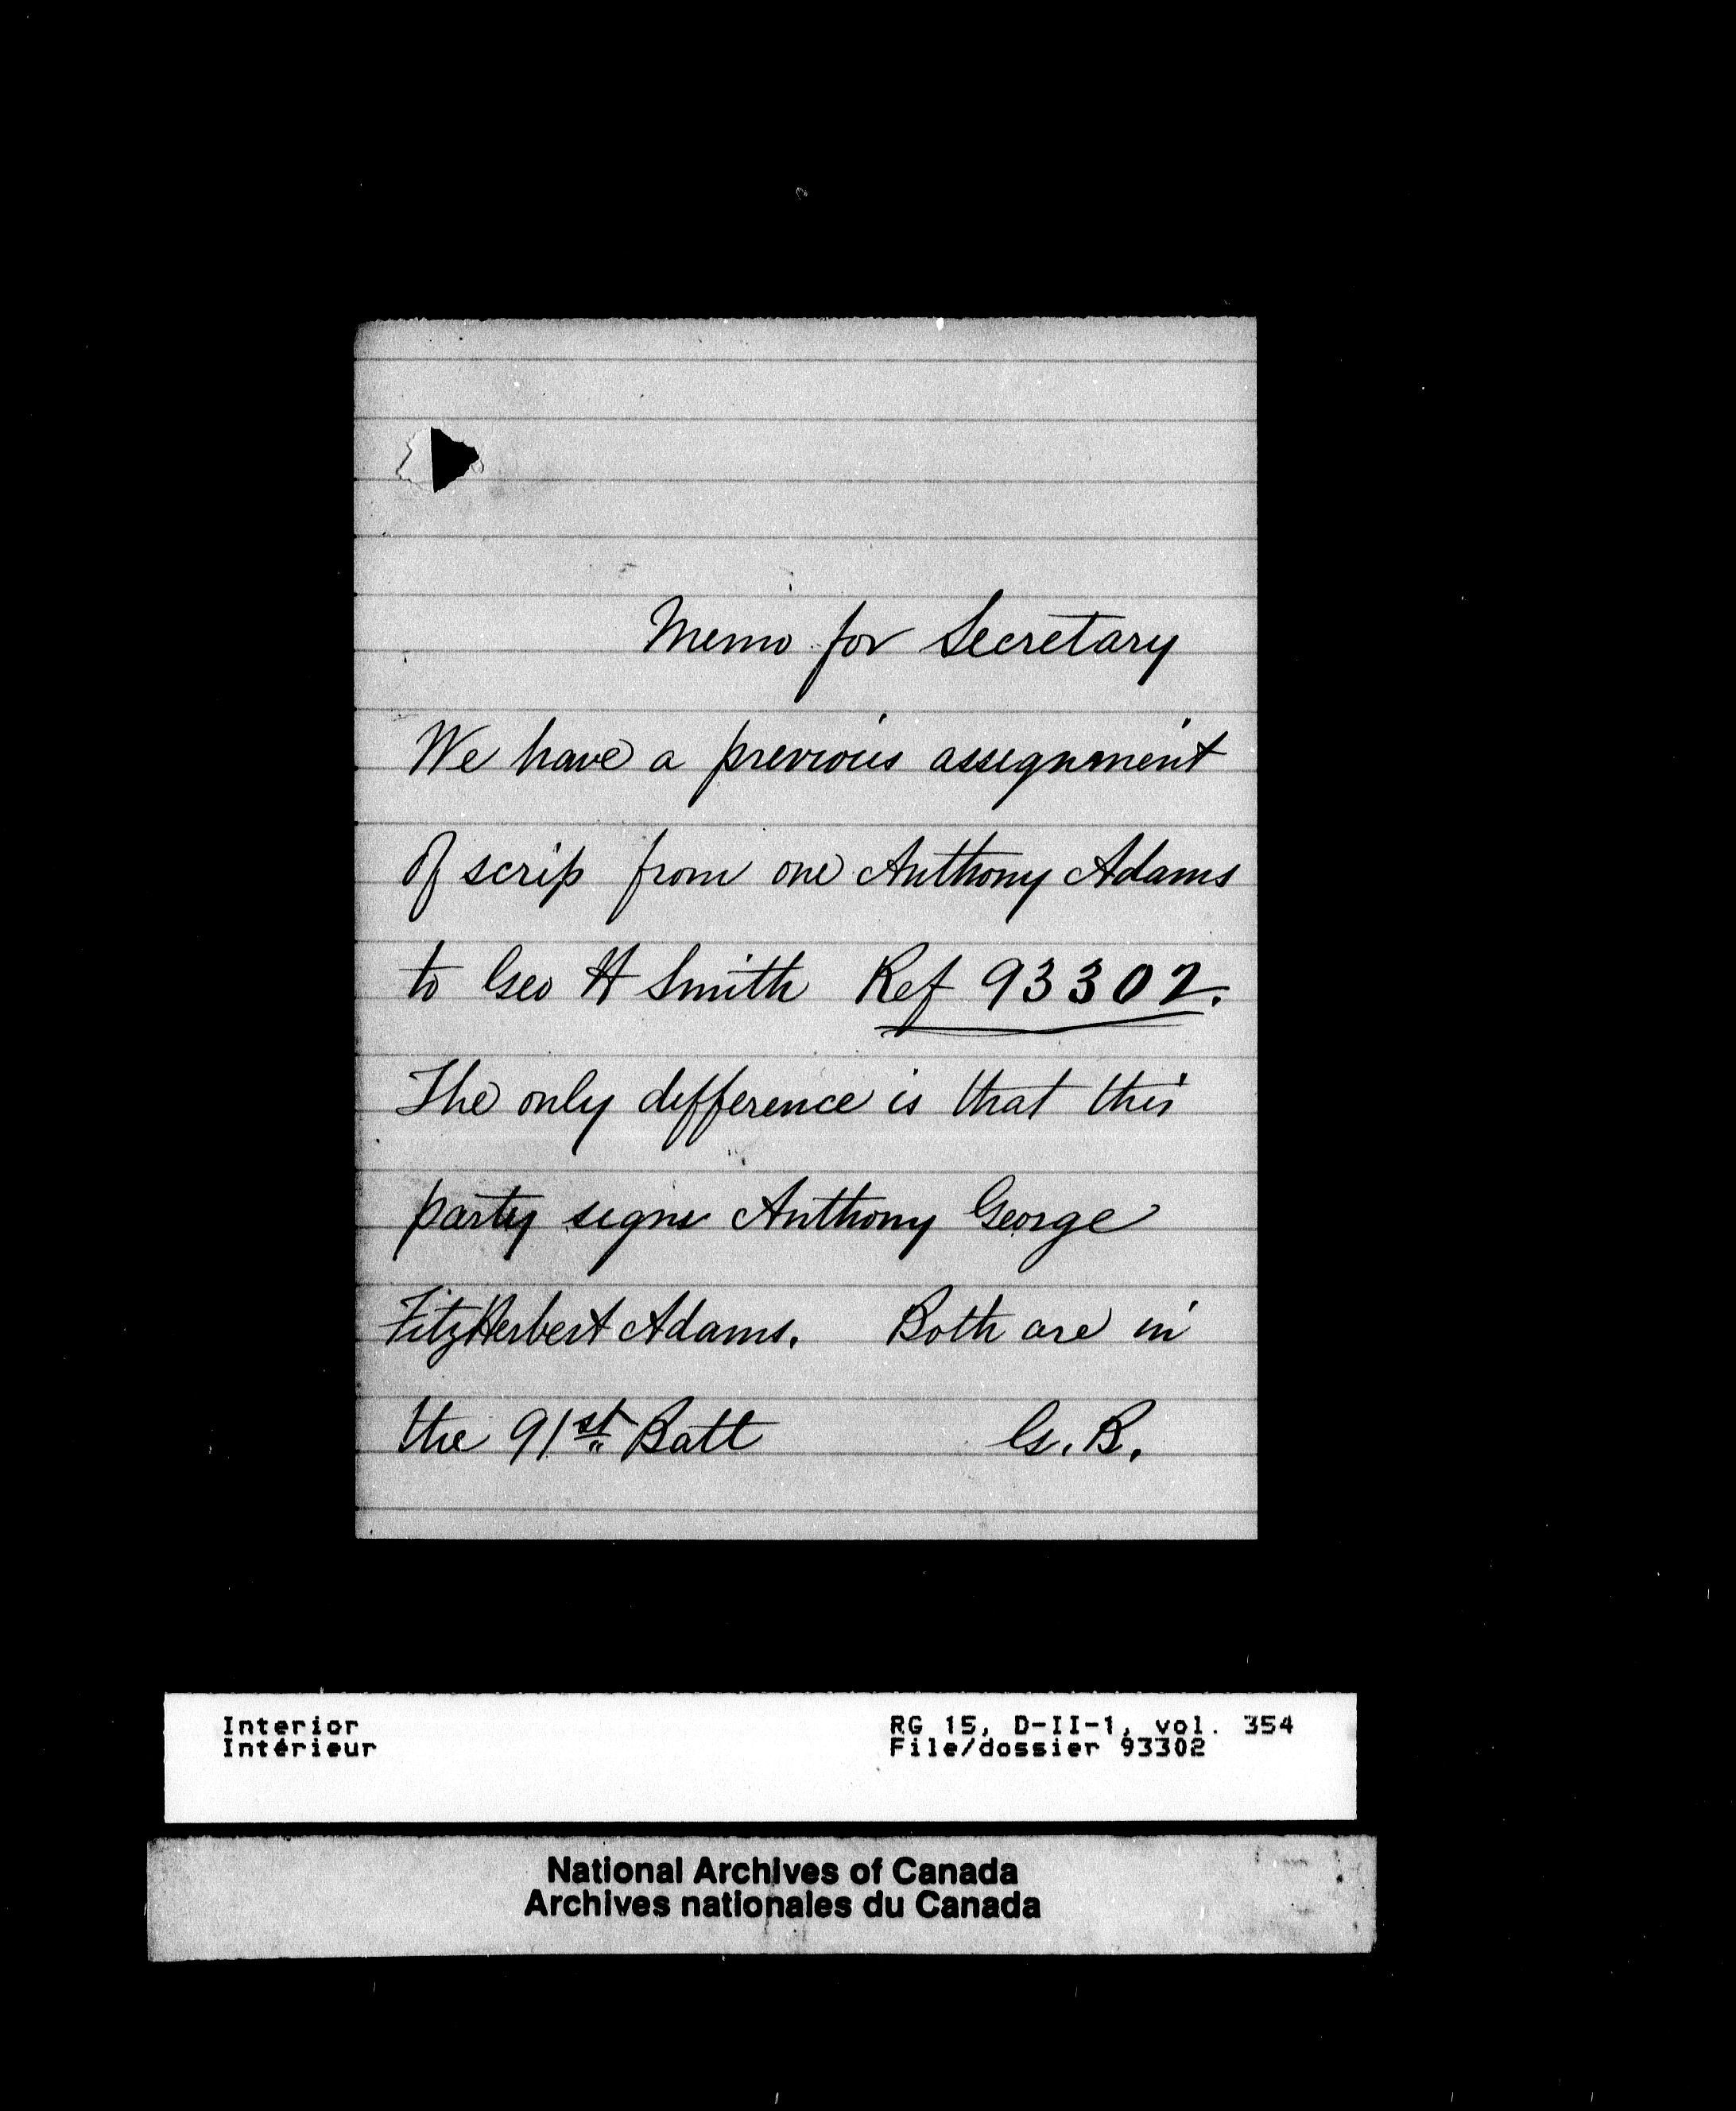 Memo for Secretary
We have a previous assignment
of scrip from one Anthony Adams
to Geo H Smith Ref 93302.
The only difference is that this
party signs Anthony George
FitzHerbert Adams. Both are in
the 91st Batt G. B.
Interior RG 15, D-II-1, vol. 354
Intérieur File/dossier 93302
National Archives of Canada
Archives nationales du Canada